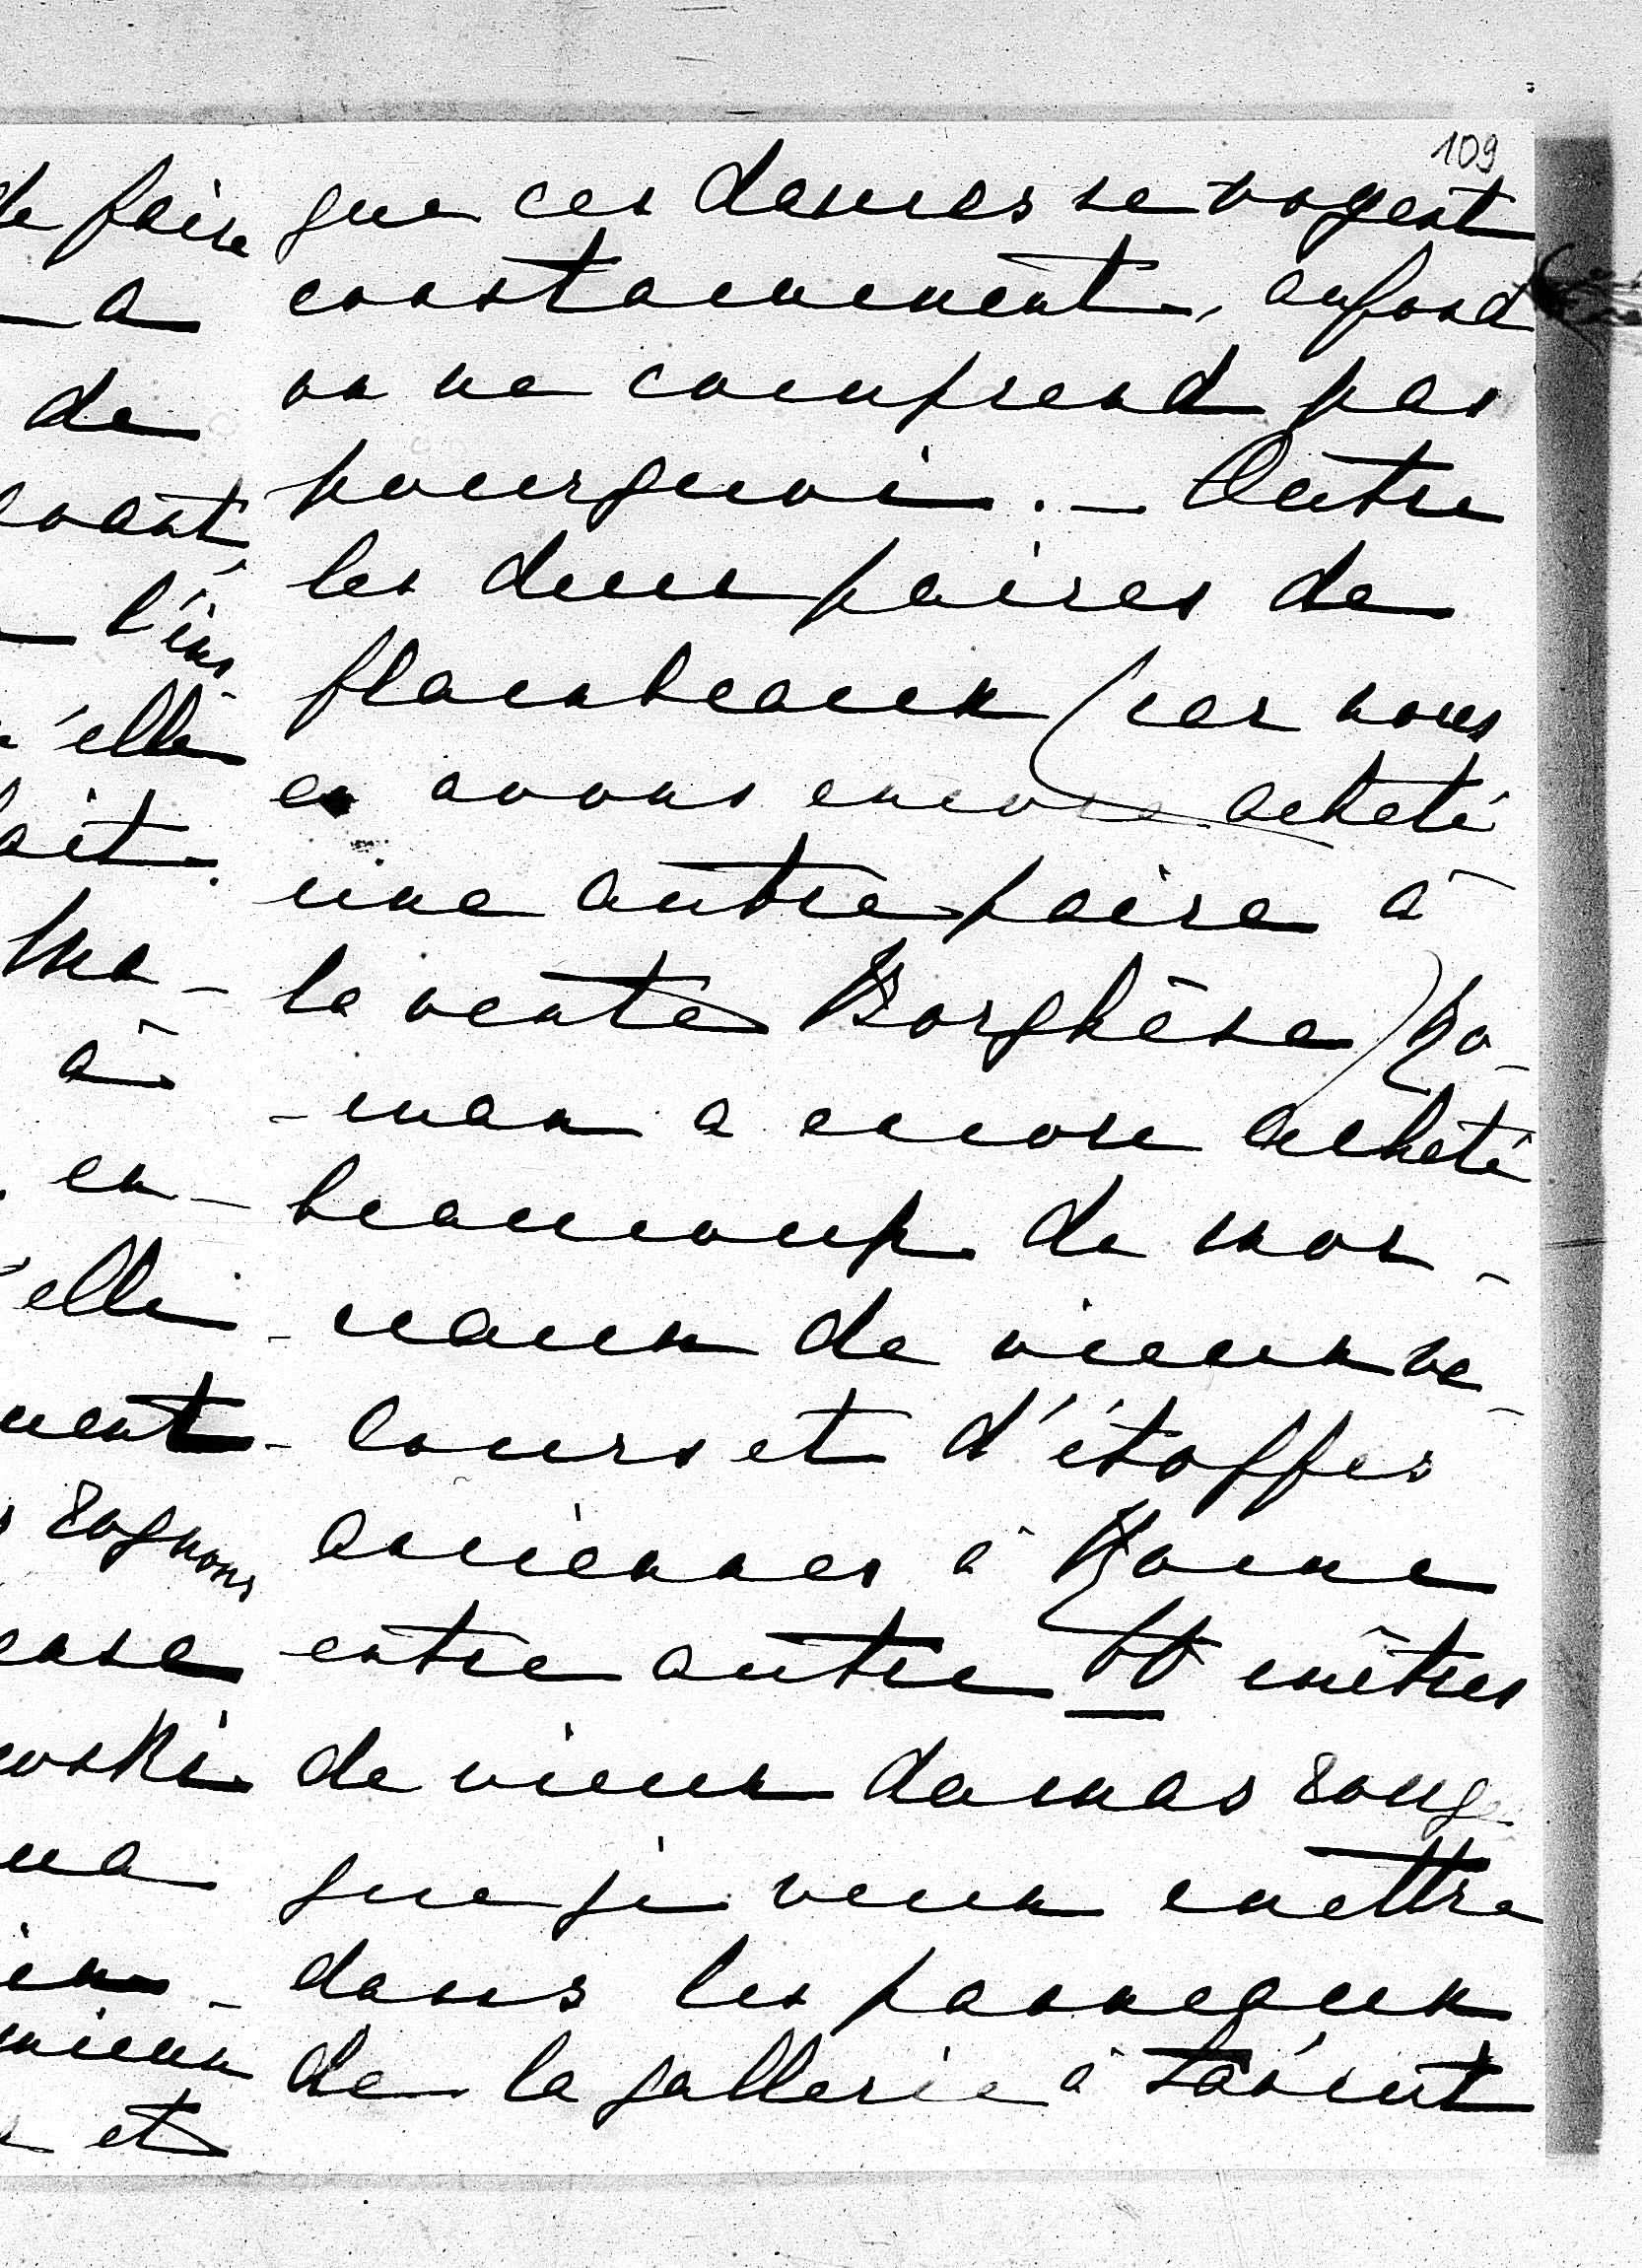 de faire
a
de
l'ins-
elle
Ma-
à
en-
elle
rognons
mieux
et
109
que ces dames se voyent
constamment, au fond
on ne comprend pas
pourquoi. — Outre
les deux paires de
flambeaux (car nous
en avons encore acheté
une autre paire à
la vente Borghèse) Ro-
-man a encore acheté
beaucoup de mor-
-ceaux de vieux ve-
-lours et d'étoffes
anciennes à Rome
entre autre mètres
de vieux damas rouge
que je veux mettre
dans les panneaux
de la gallerie à Łańcut